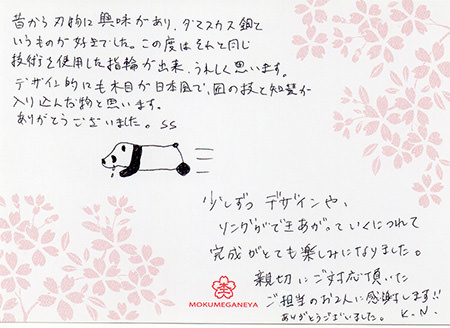 昔から刃物に興味があり、ダマスカス鋼て
いうものが好きでした。この度はそれと同じ
技術を使用した指輪が出来、うれしく思います。
デザイン的にも木目が日本風で、匠の技と知恵が
入り込んだ物と思います。
ありがとうございました。SS
少しずつ デザインや、
リングができ上あがっていくにつれて
完成がとても楽しみになりました。
親切にご対応頂いた
ご担当のお2人に感謝します!!
ありがとうございました。 K.N.
MOKUMEGANEYA